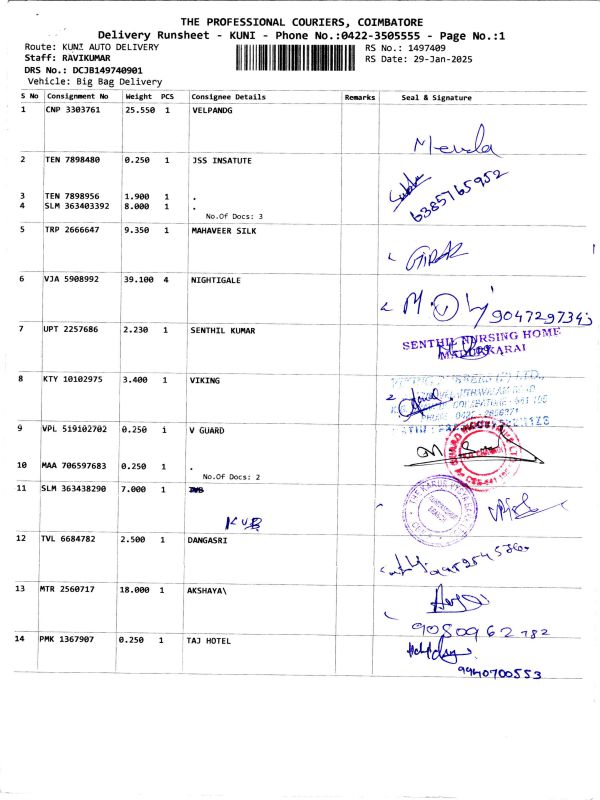 THE PROFESSIONAL COURIERS, COIMBATORE
Delivery Runsheet - KUNI - Phone No.:0422-3505555 - Page No.:1
Route: KUNI AUTO DELIVERY RS No.: 1497409
Staff: RAVIKUMAR RS Date: 29-Jan-2025
DRS No.: DCJB149740901
Vehicle: Big Bag Delivery
S No Consignment No Weight PCS Consignee Details Remarks Seal & Signature
1 CNP 3303761 25.550 1 VELPANDG
2 TEN 7898480 0.250 1 JSS INSATUTE
6385765952
3 TEN 7898956 1.900 1 .
4 SLM 363403392 8.000 1 .
No.Of Docs: 3
5 TRP 2666647 9.350 1 MAHAVEER SILK
6 VJA 5908992 39.100 4 NIGHTIGALE
7 UPT 2257686 2.230 1 SENTHIL KUMAR
SENTHIL NURSING HOME
MADUKKARAI
8 KTY 10102975 3.400 1 VIKING
9 VPL 519102702 0.250 1 V GUARD
10 MAA 706597683 0.250 1 .
No.Of Docs: 2
11 SLM 363438290 7.000 1
KVB
12 TVL 6684782 2.500 1 DANGASRI
13 MTR 2560717 18.000 1 AKSHAYA\
9080962782
14 PMK 1367907 0.250 1 TAJ HOTEL
9940700553